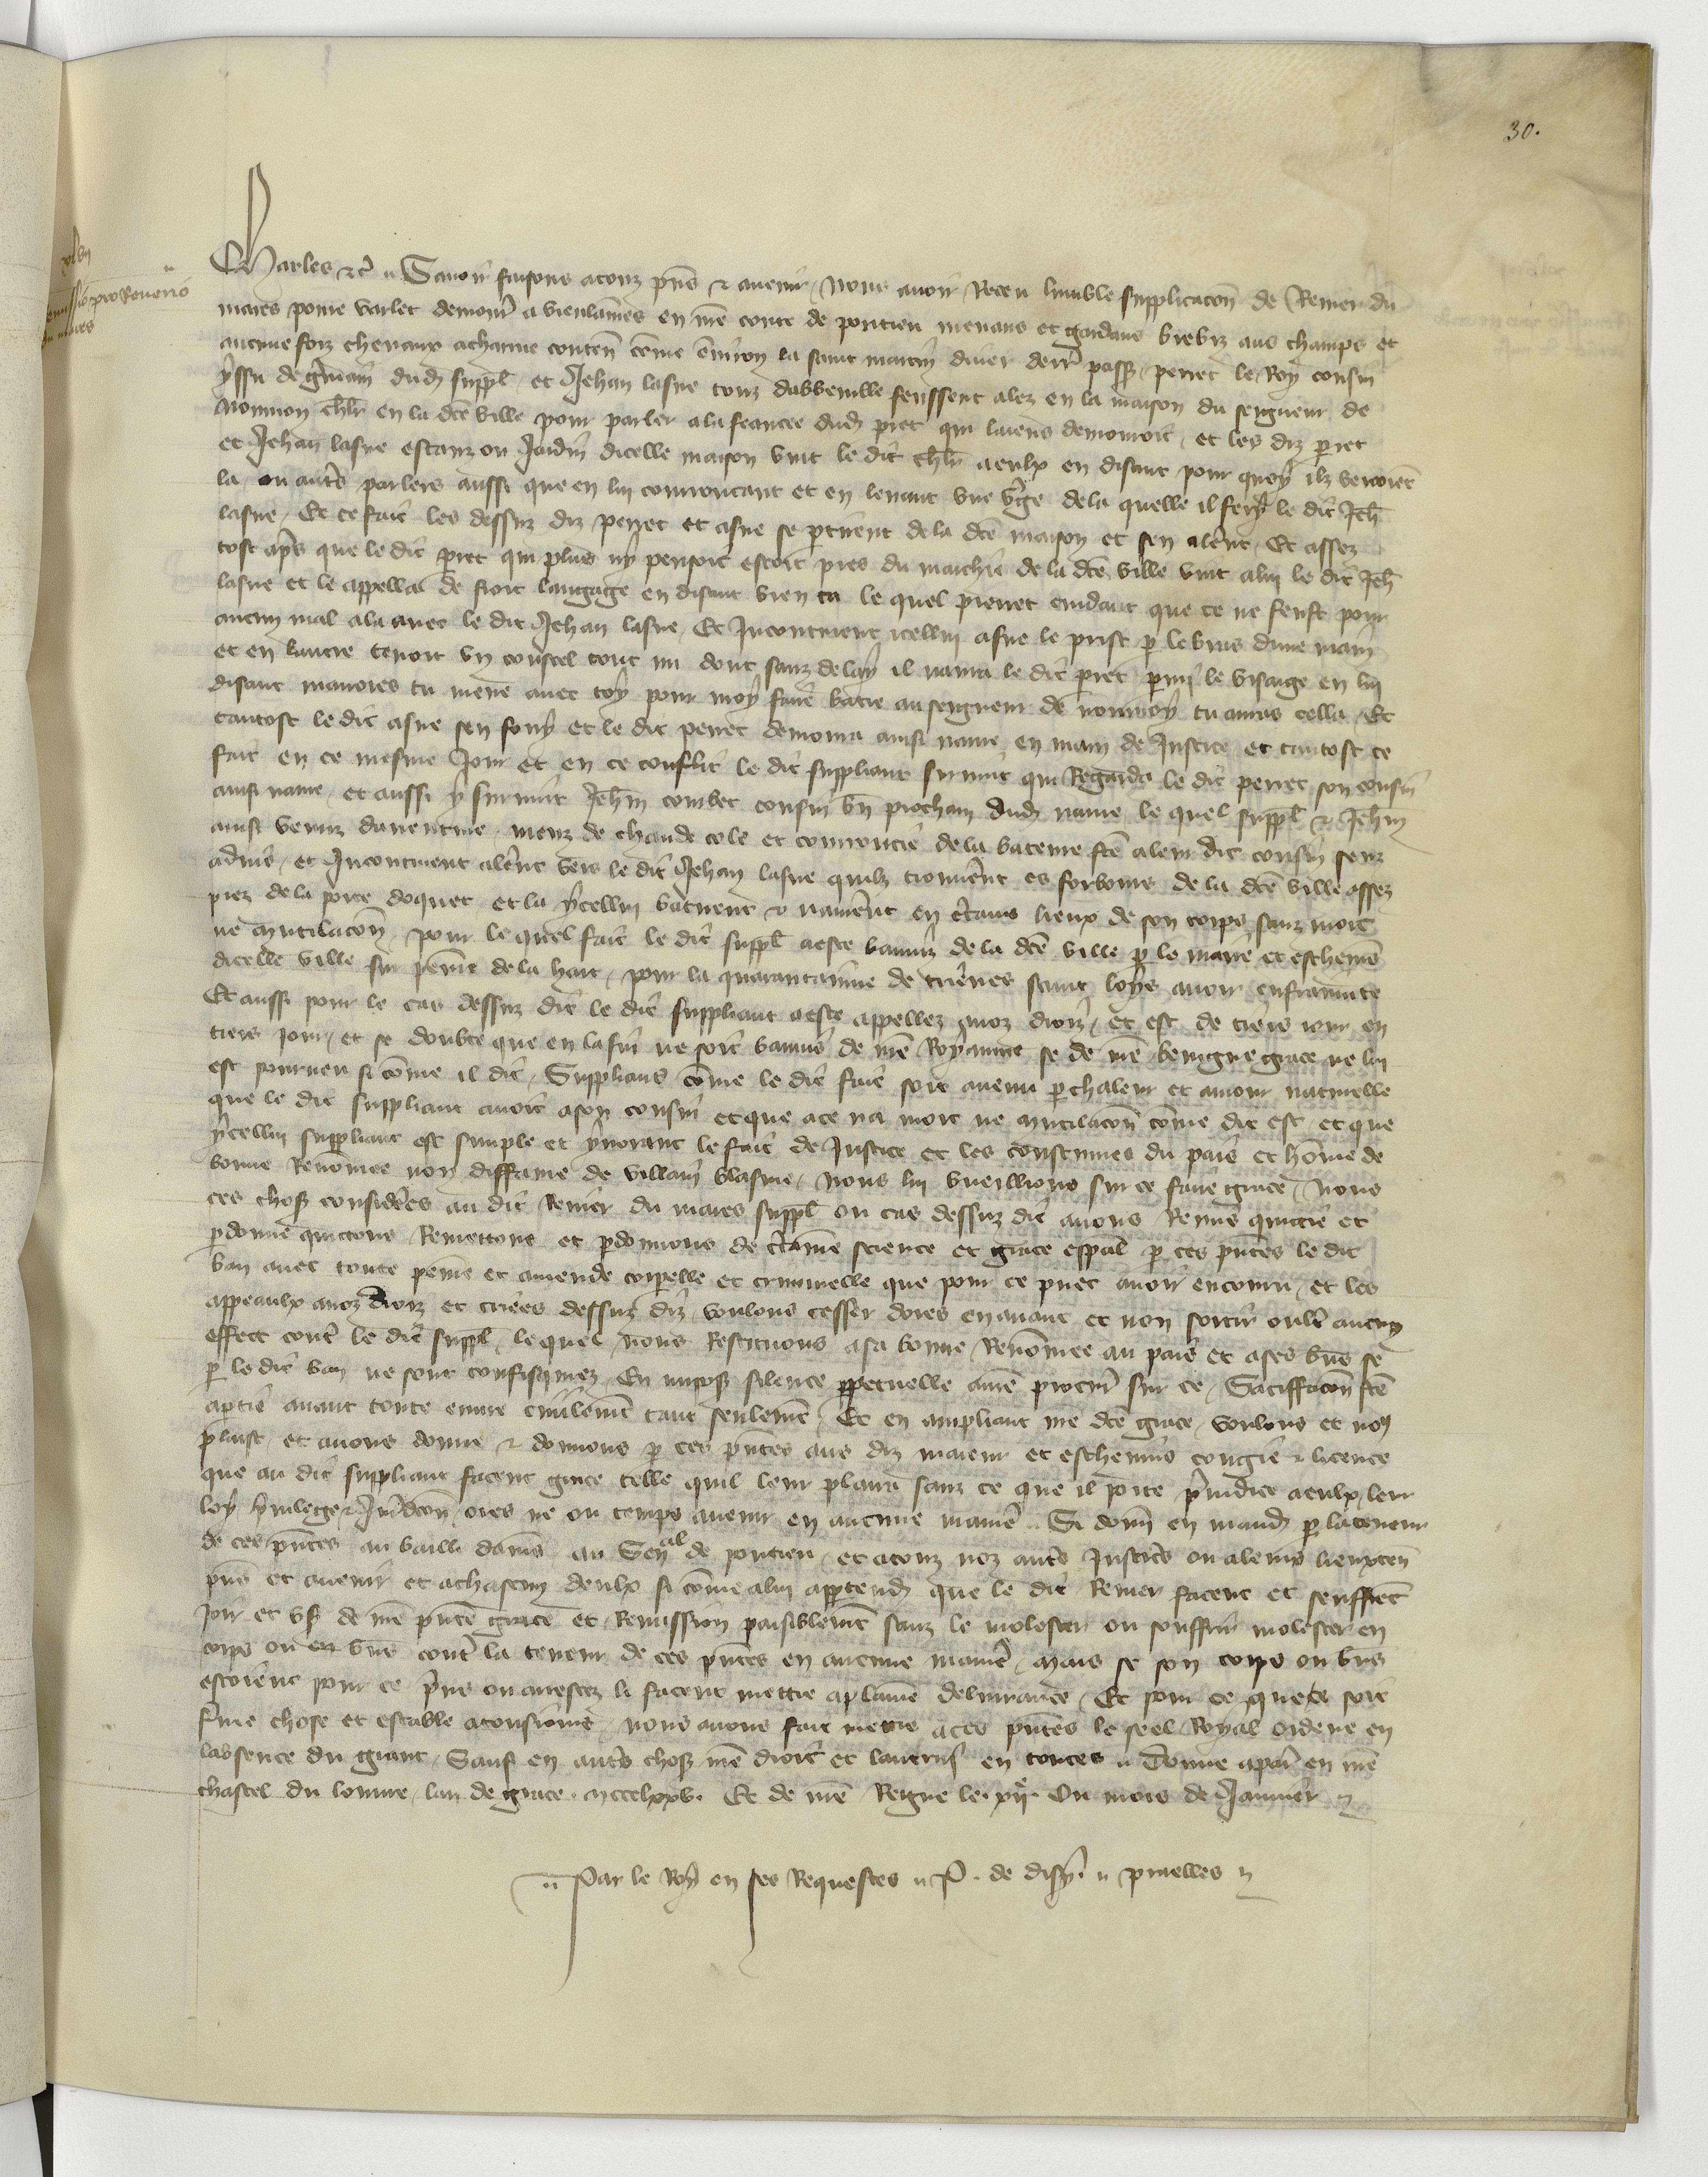 30.
xlvii
remissio pro Renerio
du mares
Charles etc. Savoir faisons a touz pñs et avenir Nous avoir Receu lumble supplicacõn de Renier du
mares povre varlet demour̃ a vieulaines en nr̃e conte de pontieu menans et gardans brebiz aus champs et
aucune foiz chevaux a charrue conteñ cõme environ la saint martin diver derr̃ passe perret le Roy cousin
yssu de germain dud suppl̃ et Jehan lasne touz dabbeville feussent alez en la maison du seigneur de
Nouvion chl̃r en la dcẽ ville pour parler a la feancee dud pret qui laiens demouroit et les diz pret
et Jehan lasne estanz ou Jardin dicelle maison vint le dit chl̃r a eulx en disant pour quoy ilz venoiẽt
la ou autr̃s parlers aussi que en lui courroucant et en levant une vr̃ge de la quelle il fery le dit Jeh̃
lasne Et ce fait les dessuz diz perret et asne se ptirent de la dcẽ maison et sen alerent Et assez
tost apr̃s que le dit pret qui plus ny pensoit estoit pres du marchie de la dcẽ ville vint a lui le dit Jeh̃
lasne et le appella de fort langaige en disant vien ca le quel pierret cuidant que ce ne feust pour
aucun mal ala avec le dit Jehan lasne Et Incontinent icellui asne le prist p le bras dune main
et en lautre tenoit un coustel tout nu dont sanz delay il navra le dit pret parmi le visaige en lui
disant mavoies tu mene avec toy pour moy faire batre au seigneur de nouvion tu auras cella Et
tantost le dit asne sen fouy et le dit perret demoura ainsi navre en main de Justice et tantost ce
fait en ce mesme Jour et en ce conflict le dit suppliant survint qui Regarda le dit perret son cousin
ainsi navre et aussi y survint Jehan combet cousin bñ prochain dud navre le quel suppl̃ et Jehan
ainsi venuz daventure meuz de chaude cole et courroucie de la bateure fcẽ a leur dit cousin senz
advis et Incontinent alerent vers le dit Jehan lasne quilz trouverent es forbours de la dcẽ ville assez
prez de la porte doquet et la ycellui batirent et navrerent en cr̃tains lieux de son corps sanz mort
ne mutilacõn pour le quel fait le dit suppl̃ a este banniz de la dcẽ ville p le maire et eschevins
dicelle ville sur peine de la hart pour la quarantainne de trieves saint loys avoir enfrainte
Et aussi pour le cas dessuz dit le dit suppliant a este appellez a noz droiz et est de tiers jour en
tiers jour et se doubte que en la fin ne soit bannis de nr̃e Royaume se de nr̃e benigne grace ne lui
est pourveu si cõme il dit Suppliant cõme le dit fait soit avenu p chaleur et amour naturelle
que le dit suppliant avoit a son cousin et que a ce na mort ne mutilacõn cõme dit est et que
ycellui suppliant est simple et ynorant le fait de Justice et les coustumes du pais et hõme de
bonne Renõmee non diffame de villain blasme Nous lui vueillions sur ce faire grace Nous
ces choses considerees au dit Renier du mares suppl̃ ou cas dessuz dit avons Remis quictie et
pdonne quictons Remettons et pdonnons de cr̃taine science et grace esp̃al p ces pñtes le dit
ban avec toute peine et amende corpelle et criminelle que pour ce puet avoir encouru et les
appeaulx a noz droiz et criees dessuz diz voulons cesser dores en avant et non sortir oultr̃ aucun
effect contr̃ le dit suppl̃ le quel Nous Restituons a sa bonne Renõmee au pais et a ses bñs se
p le dit ban ne sont confisquez En impos silence ppetuelle a nr̃e procur̃ sur ce Satisffacõn fcẽ
a ptie avant toute euvre civilemẽt tant seulemẽt Et en ampliant nr̃e dcẽ grace voulons et nous
plaist et avons donne et donnons p ces pñtes aus diz maieur et eschevins congie et licence
que au dit suppliant facent grace telle quil leur plaira sanz ce que il porte pr̃iudice a eulx leur
loy pr̃ivilege et Jur̃dcõn ores ne ou temps avenir en aucune maniere Si donñ en mand p la teneur
de ces pñtes au bailli damiens au Seneal de pontieu et a touz noz autr̃s Justicrs ou a leurs lieuxteñ
pñs et avenir et a chascun deulx si cõme a lui appartend que le dit Renier facent et seuffrẽt
Joir et us de nr̃e pñte grace et Remission paisiblemẽt sanz le molester ou souffrir molester en
corps ou en bñs contr̃ la teneur de ces pñtes en aucune maniere Mais se son corps ou bñs
estoient pour ce pr̃ins ou arrestez li facent mettre a plaine delivrance Et pour ce que ce soit
ferme chose et estable a tousiours nous avons fait mettre a ces pñtes le seel Royal ordene en
labsence du grant Sauf en autr̃s choses nr̃e droit et lautrui en toutes Donne a paris en nr̃e
chastel du louvre lan de grace mccclxxv. Et de nr̃e Regne le xije Ou mois de Janvier
Par le Roy en ses Requestes P. de disy. praelles